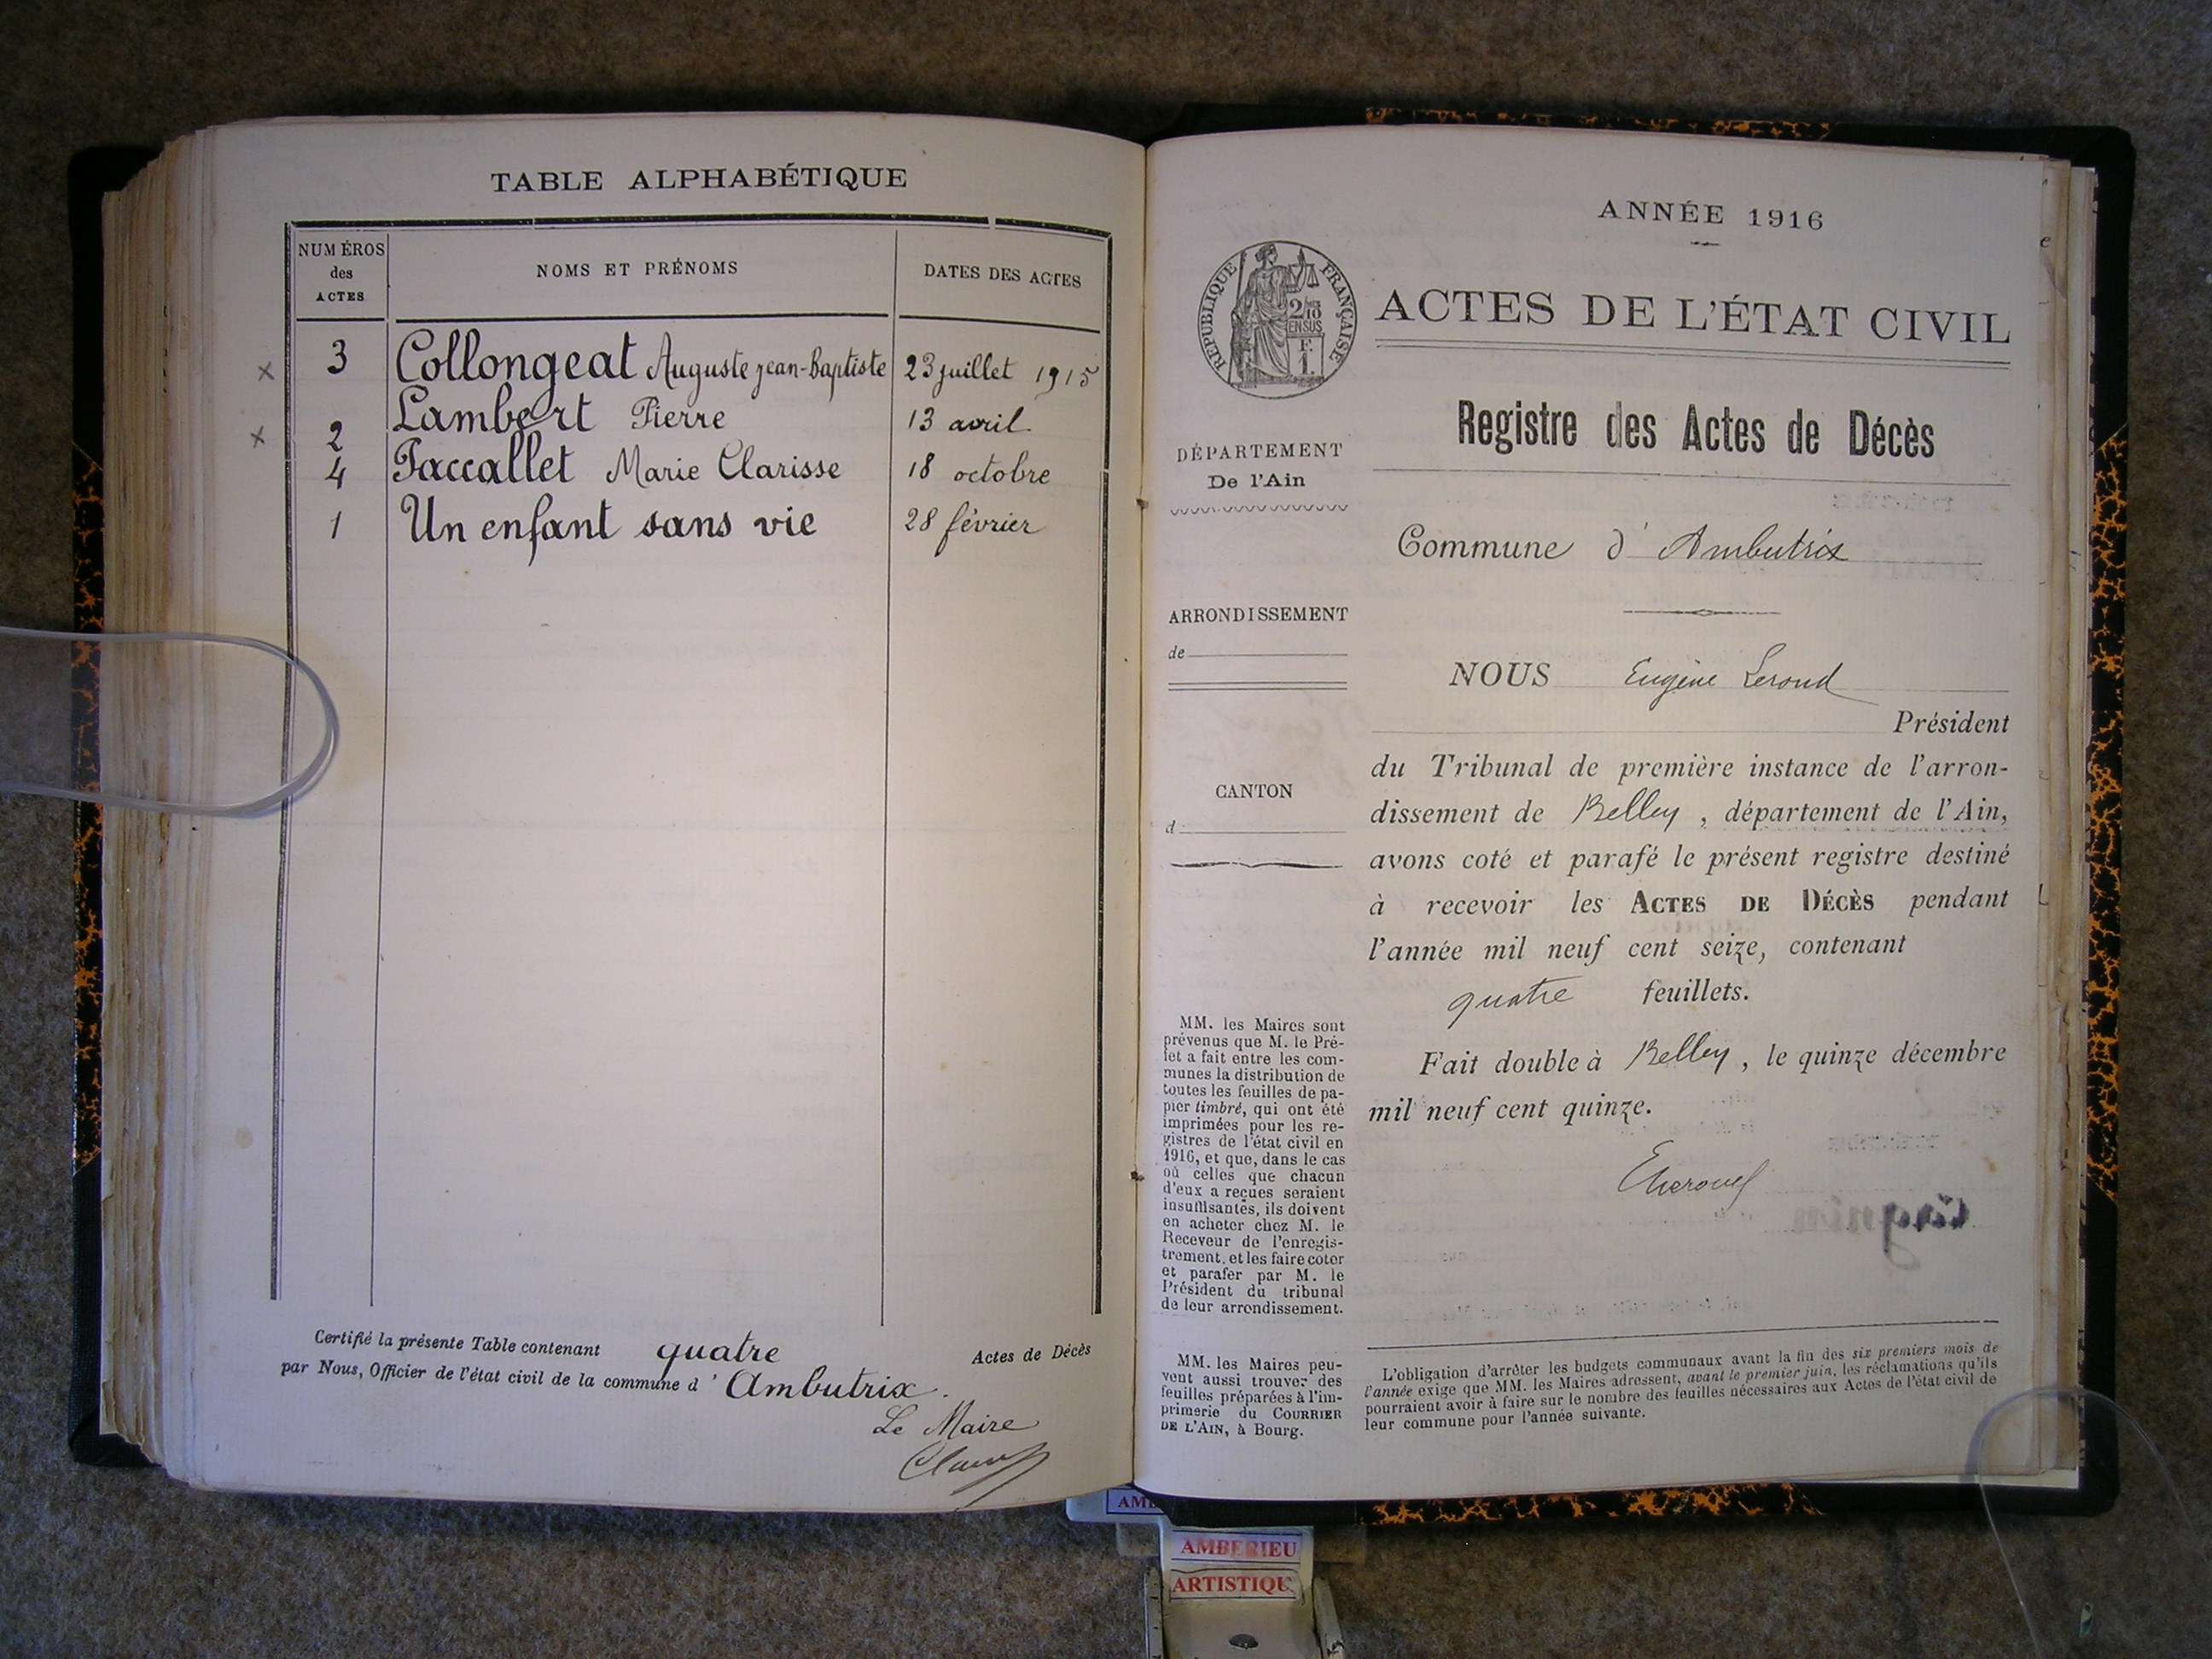 TABLE ALPHABÉTIQUE
NUMÉROS
des
ACTES
NOMS ET PRÉNOMS
DATES DES ACTES
3 Collongeat Auguste Jean-Baptiste 23 juillet 1915
2 Lambert Pierre 13 avril
4 Paccallet Marie Clarisse 18 octobre
1 Un enfant sans vie 28 février
Certifié la présente Table contenant quatre Actes de Décès
par Nous, Officier de l'état civil de la commune d'Ambutrix.
Le Maire
ANNÉE 1916
RÉPUBLIQUE FRANÇAISE
2/10
EN SUS
F.
1.
ACTES DE L'ÉTAT CIVIL
Registre des Actes de Décès
DÉPARTEMENT
De l'Ain
Commune d'Ambutrix
ARRONDISSEMENT
de
CANTON
d
NOUS Eugène Leroud
Président
du Tribunal de première instance de l'arron-
dissement de Belley, département de l'Ain,
avons coté et parafé le présent registre destiné
à recevoir les ACTES DE DÉCÈS pendant
l'année mil neuf cent seize, contenant
quatre feuillets.
Fait double à Belley, le quinze décembre
mil neuf cent quinze.
MM. les Maires sont
prévenus que M. le Pré-
fet a fait entre les com-
munes la distribution de
toutes les feuilles de pa-
pier timbré, qui ont été
imprimées pour les re-
gistres de l'état civil en
1916, et que, dans le cas
où celles que chacun
d'eux a reçues seraient
insuffisantes, ils doivent
en acheter chez M. le
Receveur de l'enregis-
trement, et les faire coter
et parafer par M. le
Président du tribunal
de leur arrondissement.
MM. les Maires peu-
vent aussi trouver des
feuilles préparées à l'im-
primerie du COURRIER
DE L'AIN, à Bourg.
L'obligation d'arrêter les budgets communaux avant la fin des six premiers mois de
l'année exige que MM. les Maires adressent, avant le premier juin, les réclamations qu'ils
pourraient avoir à faire sur le nombre des feuilles nécessaires aux Actes de l'état civil de
leur commune pour l'année suivante.
AMBERIEU
ARTISTIQU